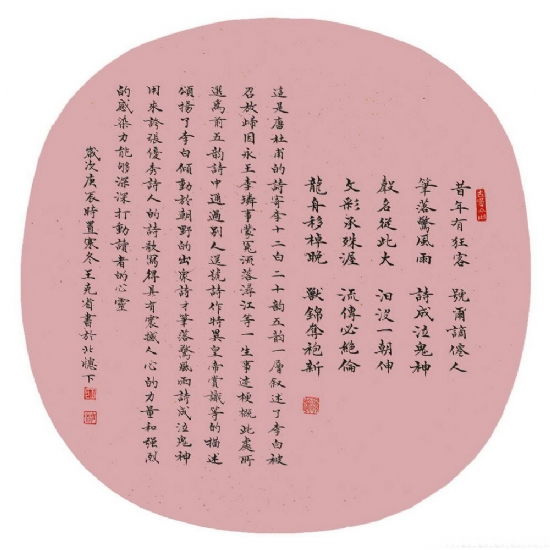 昔年有狂客 號爾謫僊人
筆落驚風雨 詩成泣鬼神
殸名從此大 汩没一朝伸
文彩承殊渥 流傳必絕倫
龍舟移棹晚 獸錦奪袍新
這是唐杜甫的詩寄李十二白二十韵五韵一層叙述了李白被
召放歸因永王李璘事蒙冤流落潯江等一生事迹梗概此處所
選爲前五韵詩中通過别人選號詩作特異皇帝賞識等的描述
頌揚了李白傾動於朝野的出衆詩才筆落驚風雨詩成泣鬼神
用來誇張優秀詩人的詩歌寫得具有震撼人心的力量和强烈
的感染力能够深深打動讀者的心靈
歲次庚辰時置寒冬王克省書於北牕下